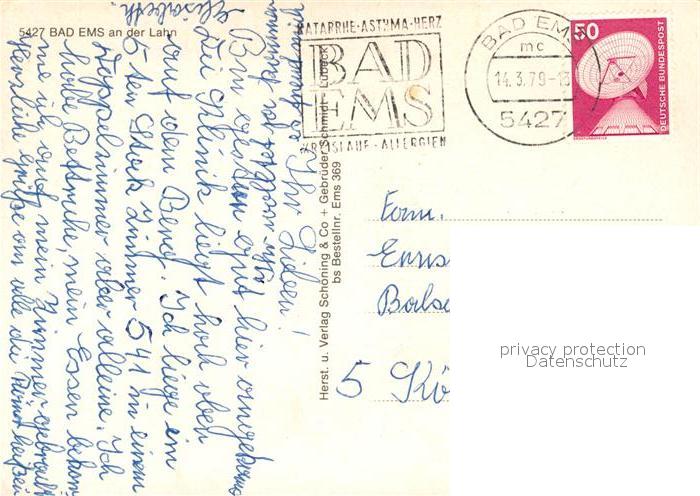 5427 BAD EMS an der Lahn
KATARRHE·ASTHMA·HERZ
BAD
EMS
KREISLAUF·ALLERGIEN
BAD EMS
mc
14.3.79-13
5427
50
DEUTSCHE BUNDESPOST
Ihr Lieben!
Bin gestern gut hier angekommen
Die Klinik liegt hoch oben
auf dem Berg. Ich liege im
6 ten Stock Zimmer 541 in einem
Doppelzimmer aber alleine. Ich
habe Bettruhe, mein Essen bekom
me ich auf mein Zimmer gebracht
Herzliche Grüße an alle
Elisabeth.
Herst. u. Verlag Schöning & Co + Gebrüder Schmidt - Lübeck
bs Bestellnr. Ems 369
Fam.
5 Kö
privacy protection
Datenschutz